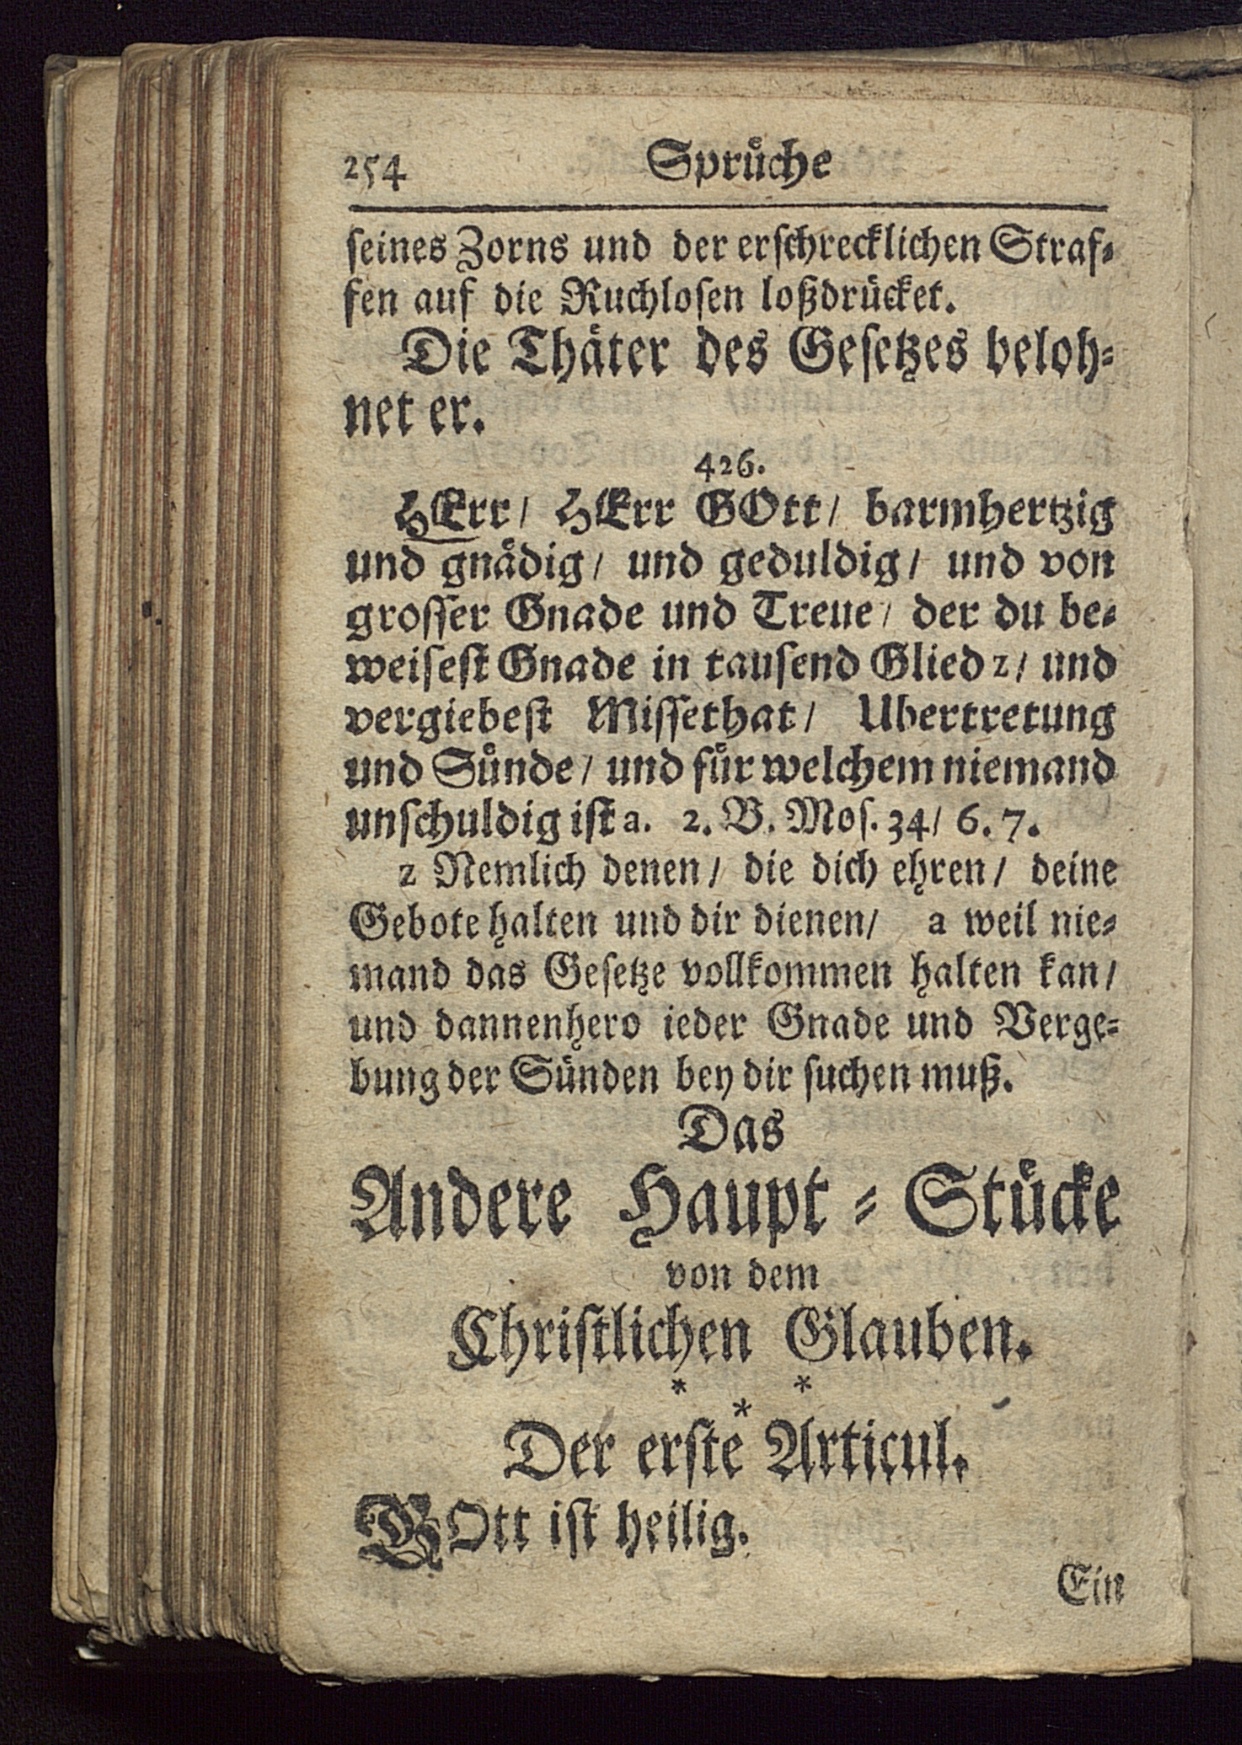 254 Sprüche
ſeines Zorns und der erſchrecklichen Straf⸗
fen auf die Ruchloſen loßdrücket.
Die Thäter des Geſetzes beloh⸗
net er.
426.
HErr/ HErr GOtt/ barmhertzig
und gnädig/ und geduldig/ und von
groſſer Gnade und Treue/ der du be⸗
weiſeſt Gnade in tauſend Glied z/ und
vergiebeſt Miſſethat/ Ubertretung
und Sünde/ und für welchem niemand
unſchuldig iſt a. 2. B. Moſ. 34/ 6. 7.
z Nemlich denen/ die dich ehren/ deine
Gebote halten und dir dienen/ a weil nie⸗
mand das Geſetze vollkommen halten kan/
und dannenhero ieder Gnade und Verge⸗
bung der Sünden bey dir ſuchen muß.
Das
Andere Haupt⸗Stücke
von dem
Chriſtlichen Glauben.
* * *
Der erſte Articul.
GOtt iſt heilig.
Ein